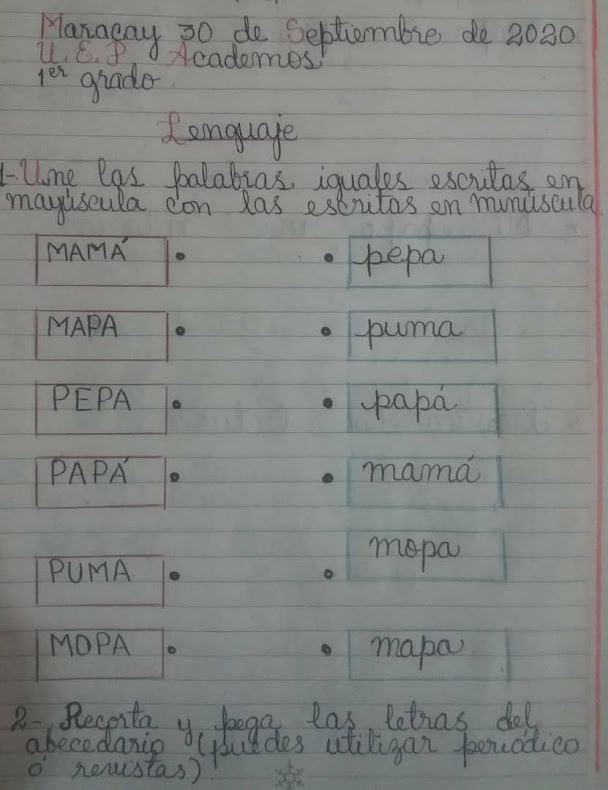 Maracay 30 de Septiembre de 2020
U.E.P Academos
1er grado
Lenguaje
1- Une las palabras iguales escritas en
mayúscula con las escritas en minúscula
MAMÁ • • pepa
MAPA • • puma
PEPA • • papá
PAPÁ • • mamá
PUMA • • mopa
MOPA • • mapa
2- Recorta y pega las letras del
abecedario (puedes utilizar periódico
ó revistas)